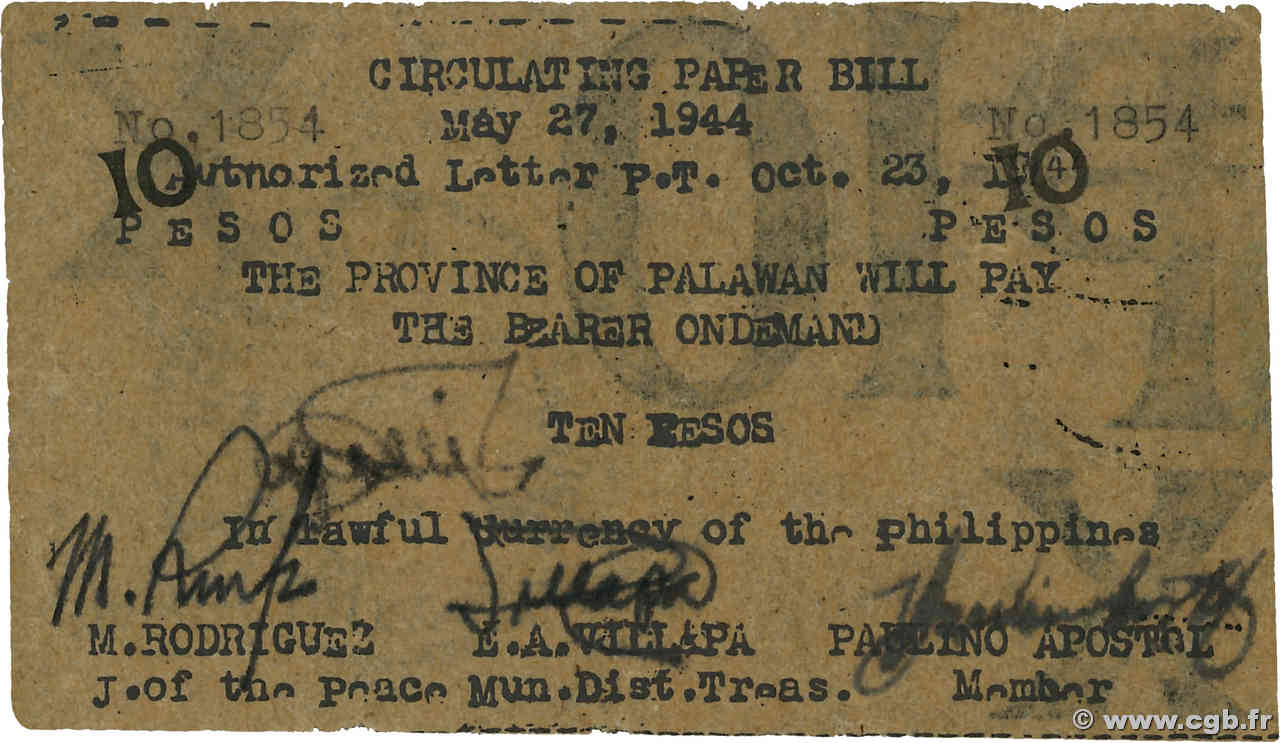 CIRCULATING PAPER BILL
No.1854 May 27, 1944 No.1854
10 Autnorized Letter P.T. Oct. 23, 10
PESOS PESOS
THE PROVINCE OF PALAWAN WILL PAY
THE BEARER ONDEMAND
TEN PESOS
In lawful currency of the Philippines
M.RODRIGUEZ E.A.VILLAPA PAULINO APOSTOL
J.of the Peace Mun.Dist.Treas. Member
© www.cgb.fr